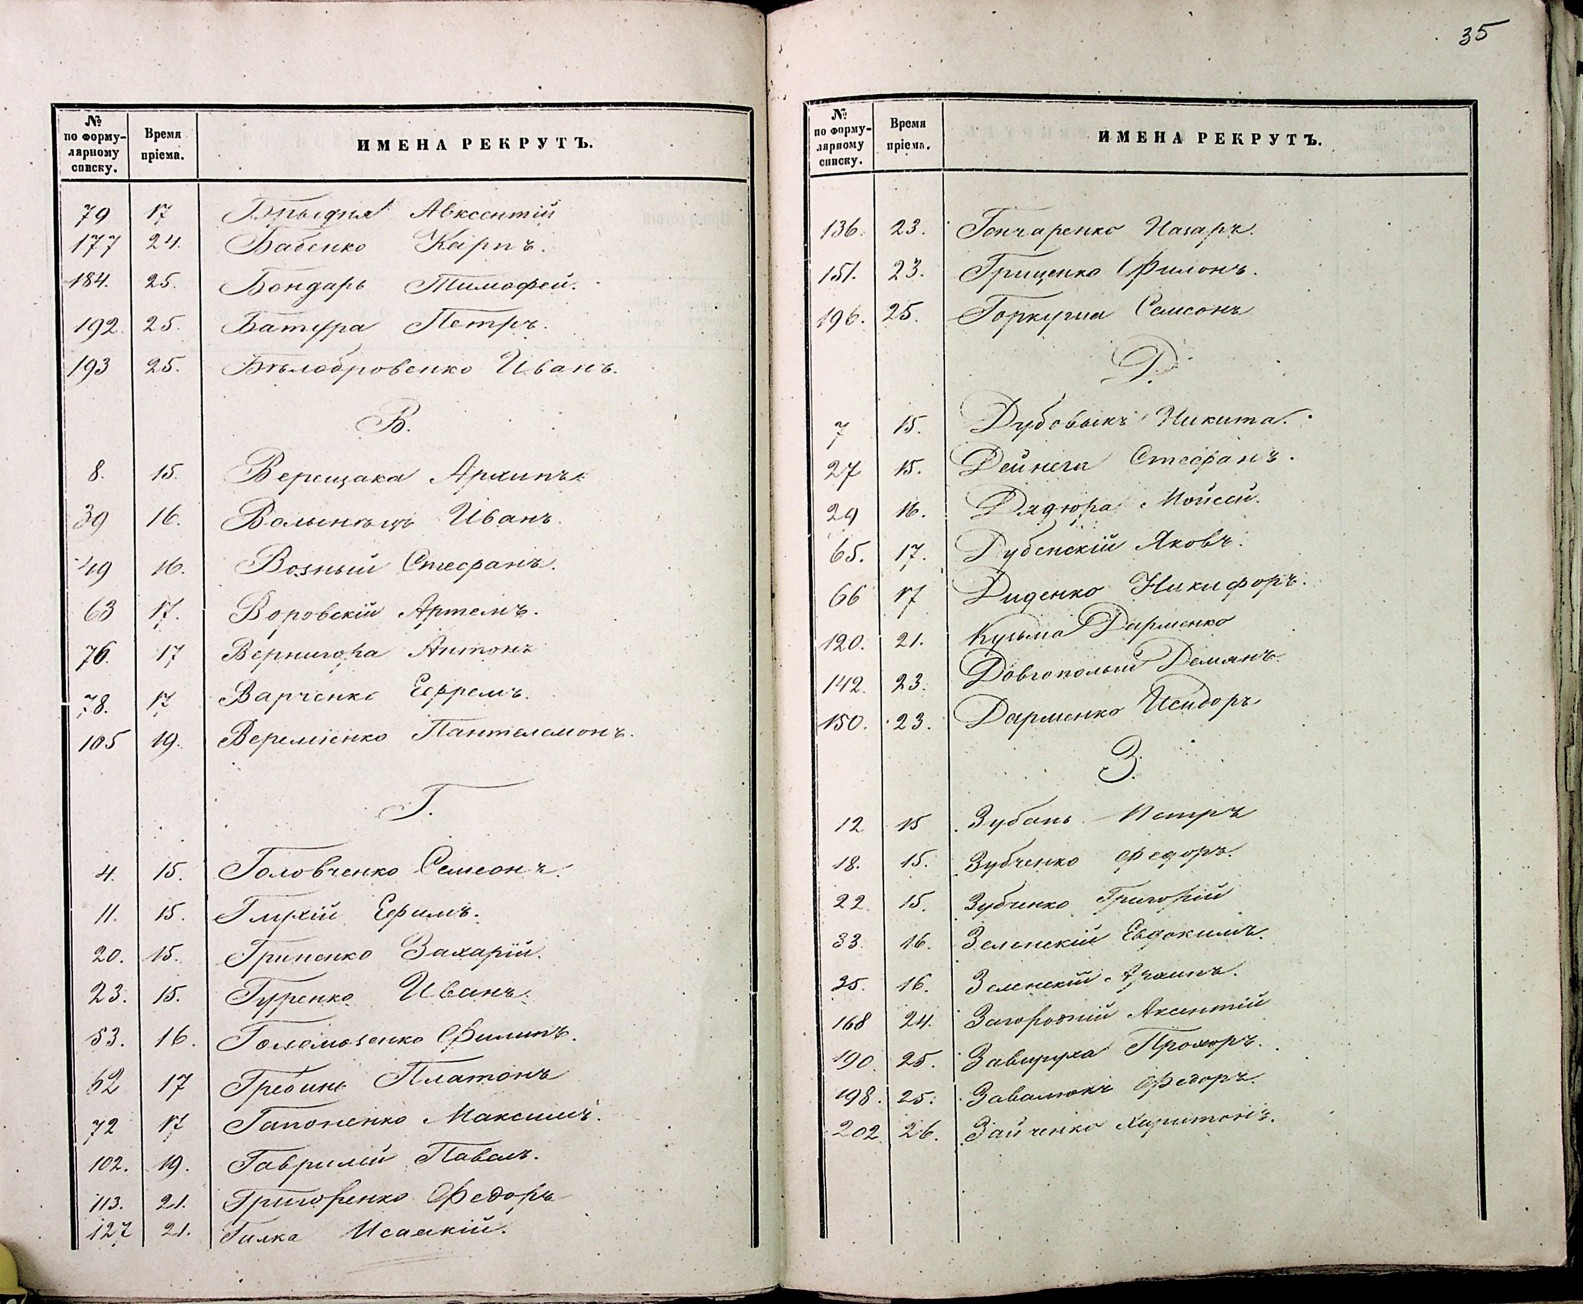 35
№ по формулярному списку.
Время пріема.
ИМЕНА РЕКРУТЪ.
79 17 Авксентій
177 24. Бабенко Карпъ.
184. 25. Бондарь Тимофей.
192. 25. Батура Петръ.
193 25. Бѣлобровенко Иванъ.
В.
8. 15. Верещака Архипъ
39 16. Волынецъ Иванъ.
49 16. Возный Стефанъ.
63 17. Воровскій Артемъ.
76. 17 Вернигора Антонъ
78. 17 Варченко Ефремъ.
105 19. Веремѣенко Пантелемонъ.
Г.
4. 15. Головченко Семеонъ.
11. 15. Глухій Ефимъ.
20. 15. Гриненко Захарій.
23. 15. Гуренко Иванъ.
53. 16. Голомозенко Филипъ.
62 17 Гребинь Платонъ
72 17 Гапоненко Максимъ.
102. 19. Гаврилей Павелъ.
113. 21. Григоренко Федоръ
127 21. Гилка Исаакій.
№ по формулярному списку.
Время пріема.
ИМЕНА РЕКРУТЪ.
136. 23. Гончаренко Назаръ.
151. 23. Гриценко Филонъ.
196. 25. Горкуша Семеонъ
Д.
7 15. Дубовыкъ Никита.
27 15. Дейнега Стефанъ.
29 16. Дядюра Мойсей.
65. 17. Дубенскій Яковъ.
66 17 Диденко Никифоръ.
120. 21. Кузьма Дарменко
142. 23. Довгополый Демянъ
150. 23. Дарменко Исидоръ
З.
12 15 Зубань Петръ
18. 15. Зубченко Федоръ.
22. 15. Зубченко Григорій
33 16. Зеленскій Евдокимъ.
35. 16. Зеленскій
168 24. Загородній Аксентій
190. 25. Завируха Прохоръ.
198. 25. Завалюкъ Федоръ.
202 26. Зайченко Харитонъ.